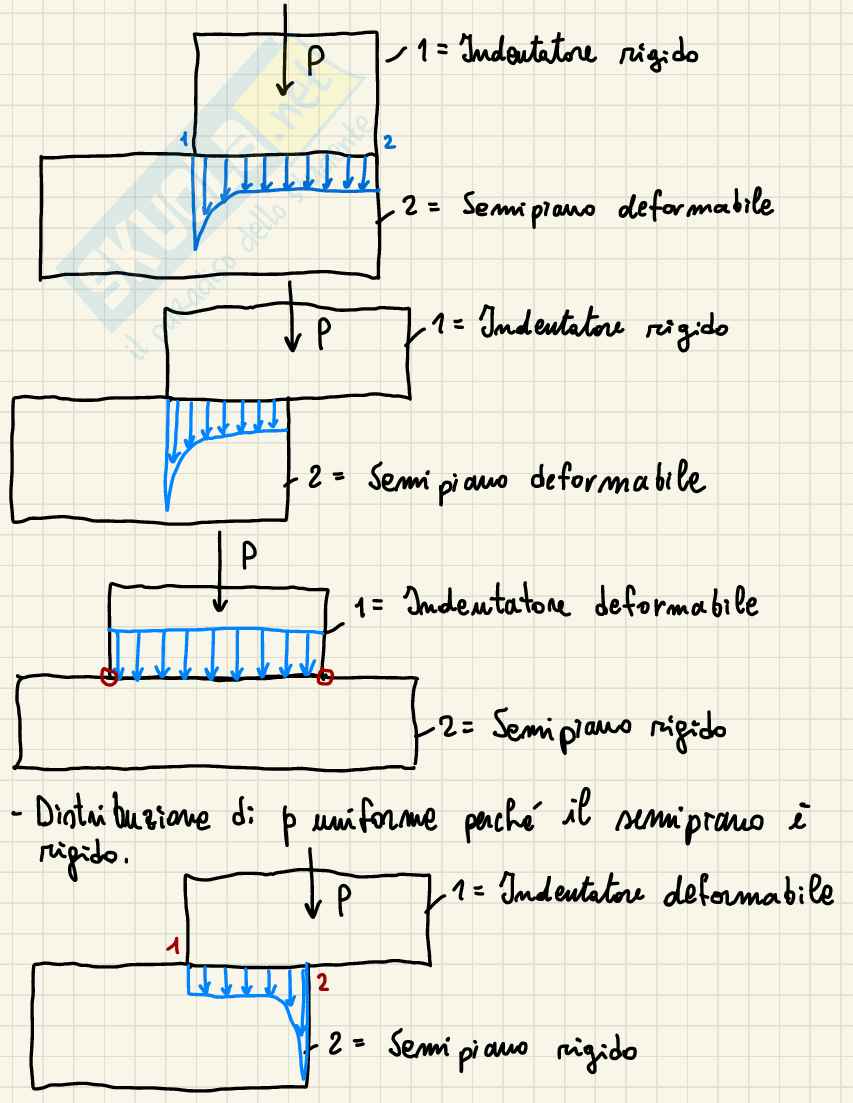 P
1 = Indentatore rigido
1
2
2 = Semipiano deformabile
SKUOLA.net
il paradiso dello studente
P
1 = Indentatore rigido
2 = Semipiano deformabile
P
1 = Indentatore deformabile
2 = Semipiano rigido
- Distribuzione di p uniforme perché il semipiano è
rigido.
P
1 = Indentatore deformabile
1
2
2 = Semipiano rigido